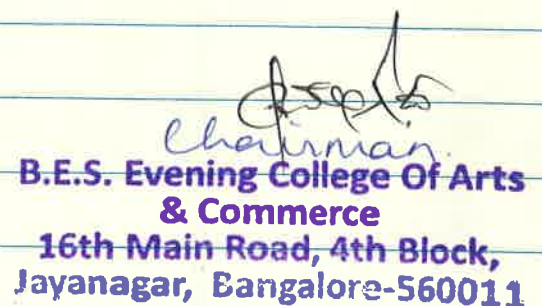 Chairman.
B.E.S. Evening College Of Arts
& Commerce
16th Main Road, 4th Block,
Jayanagar, Bangalore-560011